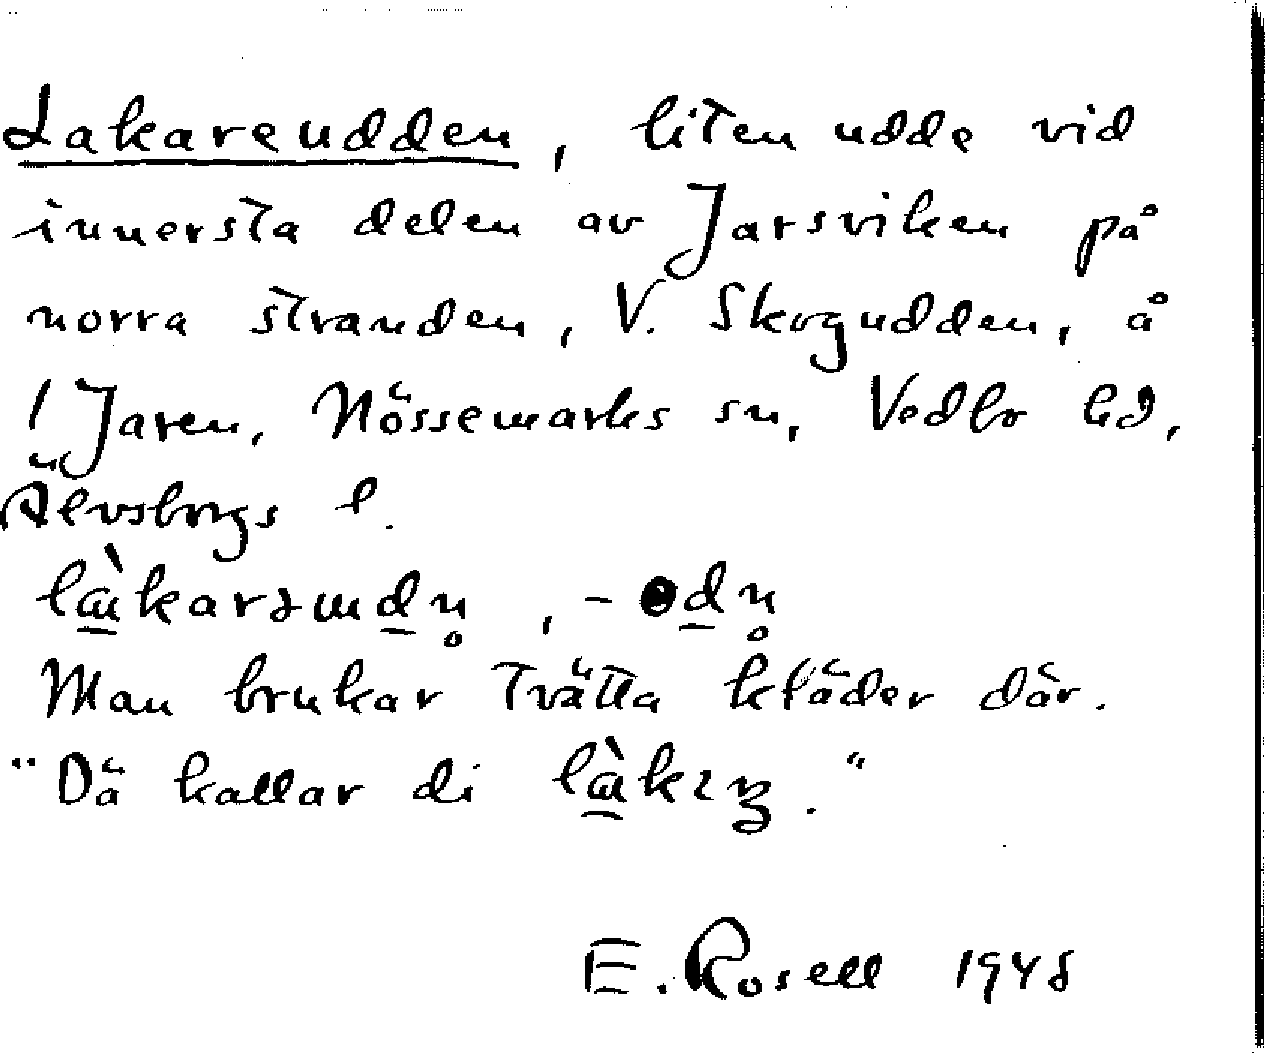 Lakareudden, liten udde vid
innersta delen av Jarsviken på
norra stranden, V. Skogudden, å
/ Jaren, Nössemarks sn, Vedbo hd,
Älvsborgs l.
Man brukar tvätta kläder där.
"Dä kallar di
E. Rosell 1948